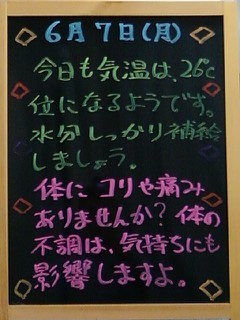 6月7日(月)
今日も気温は、26℃
位になるようです。
水分しっかり補給
しましょう。
体にコリや痛み
ありませんか?体の
不調は、気持ちにも
影響しますよ。